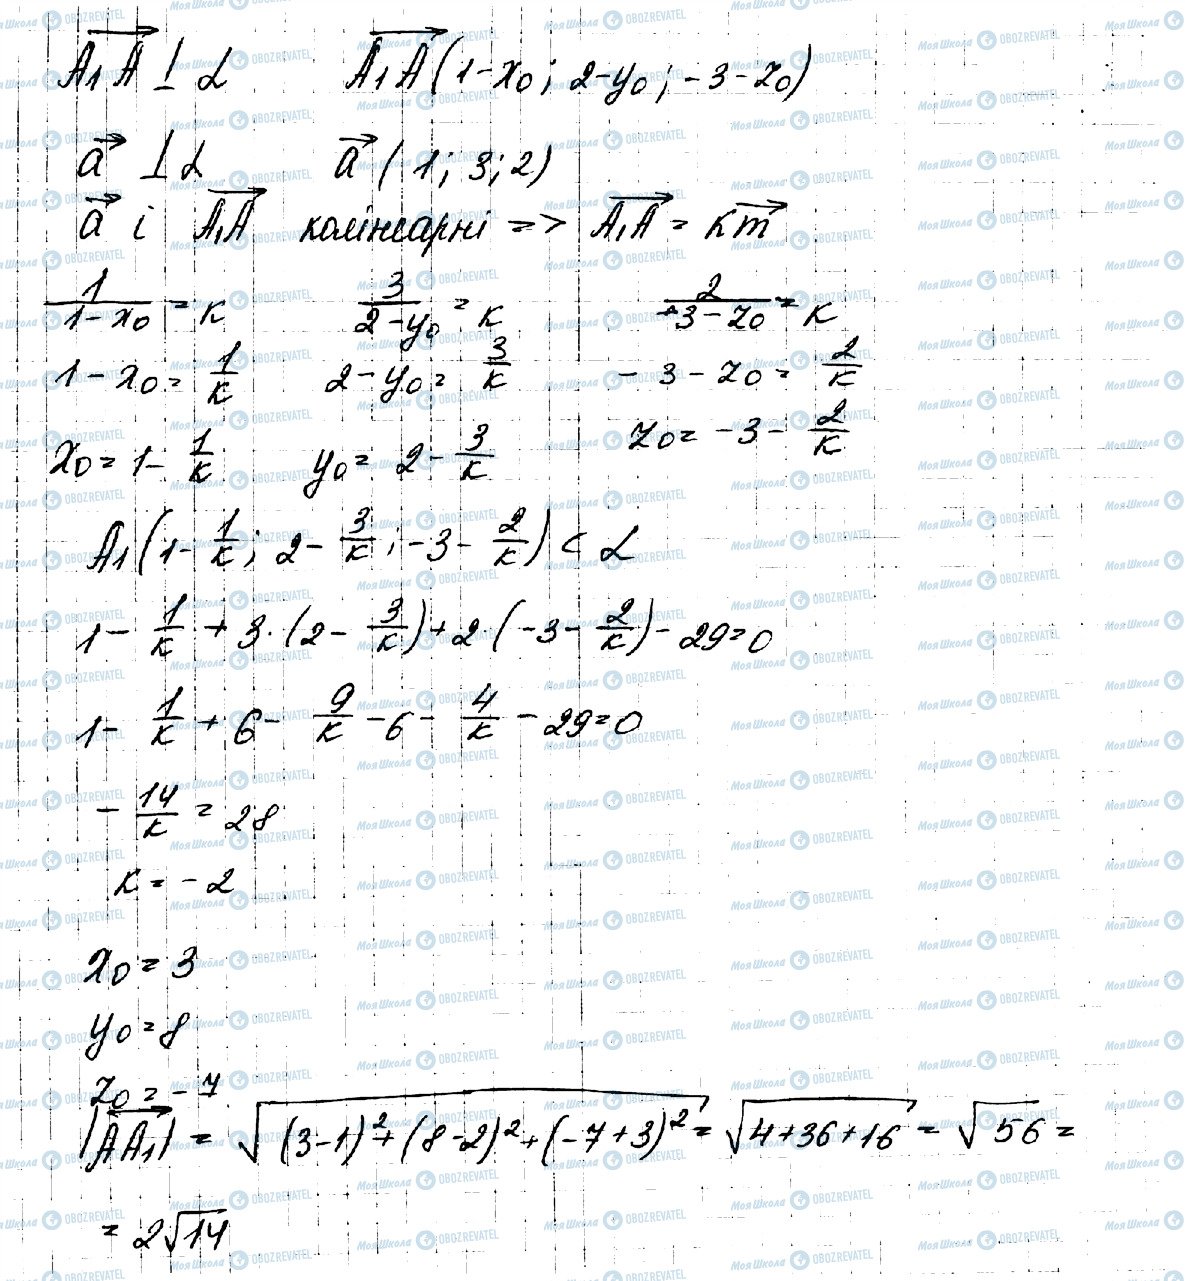 A₁A⃗ ⊥ α    A₁A⃗ (1-x₀; 2-y₀; -3-z₀)
a⃗ ⊥ α    a⃗ (1; 3; 2)
a⃗ і A₁A⃗ колінеарні => A₁A⃗ = km⃗
1/(1-x₀) = k    3/(2-y₀) = k    2/(-3-z₀) = k
1-x₀ = 1/k    2-y₀ = 3/k    -3-z₀ = 2/k
x₀ = 1 - 1/k    y₀ = 2 - 3/k    z₀ = -3 - 2/k
A₁(1 - 1/k; 2 - 3/k; -3 - 2/k) ⊂ α
1 - 1/k + 3·(2 - 3/k) + 2·(-3 - 2/k) - 29 = 0
1 - 1/k + 6 - 9/k - 6 - 4/k - 29 = 0
-14/k = 28
k = -2
x₀ = 3
y₀ = 8
z₀ = -7
|AA₁⃗| = √((3-1)² + (8-2)² + (-7+3)²) = √(4+36+16) = √56 =
= 2√14